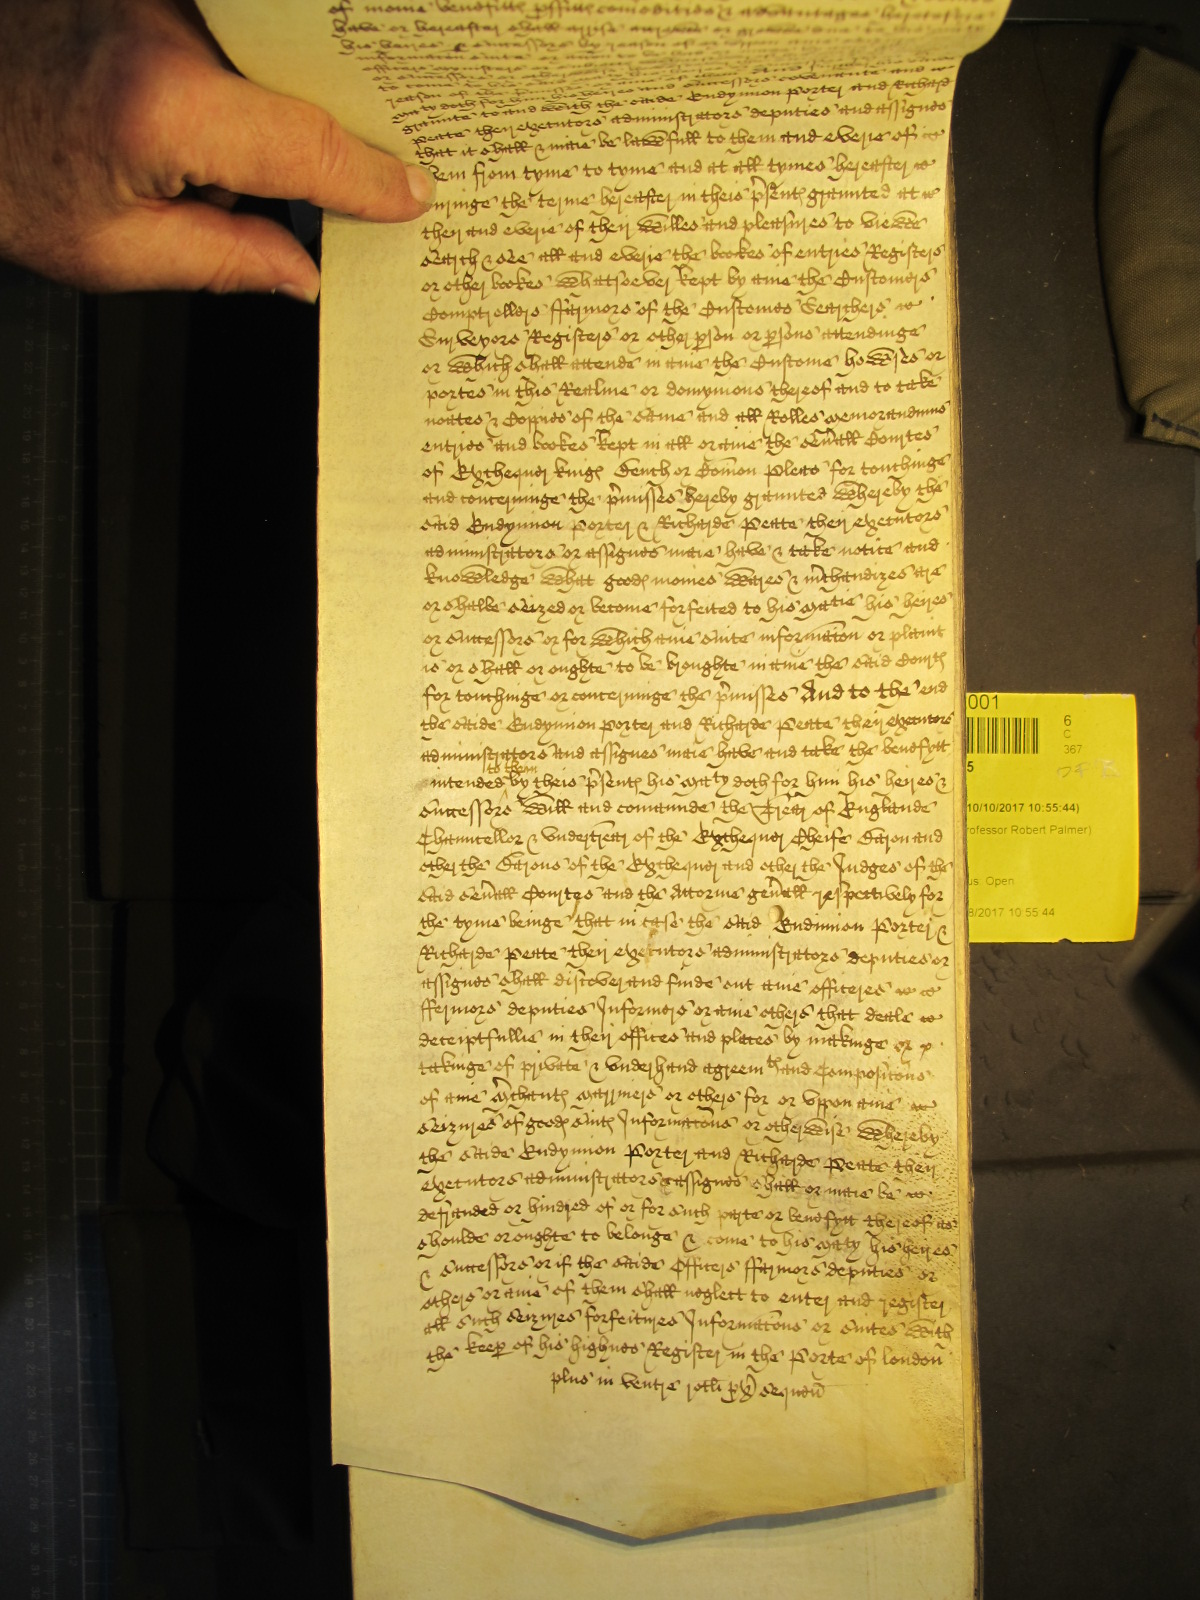 of moitie benefitte pffitte comodities & advantages
have or hereafter shall arise
his heires & successors by reason of
reason of the
successors covenante and
graunte to and with the saide Endymion Porter and Richard
Peate their executors administrators deputies and assignes
that it shall & maie be lawfull to them and everie of
them from tyme to tyme and at all tymes hereafter
duringe the terme hereafter in theis pñsentes graunted at
their and everie of their willes and pleasures to viewe
search & see all and everie the bookes of entries Registers
or other bookes whatsoever kept by anie the Customers
Comptrollers ffarmors of the Customes Searchers
Surveyors Registers or other pson or psons attendinge
or which shall attende in anie the Custome howses or
portes in this Realme or domynions thereof and to take
noates & Coppies of the same and all Rolles memorandums
entries and bookes kept in all or anie the sev̄all Courtes
of Exchequor kinges Bench or Com̄on Pleas for touchinge
and concerninge the p̄misses hereby graunted whereby the
said Endymion Porter & Richarde Peate their executors
administrators or assignes maie have & take notice and
knowledge what goodes monies wares & m̄chandizes are
or shalbe seized or become forfeited to his Matie his heires
or successors or for which anie suite informac̄on or plaint
is or shall or oughte to be broughte in anie the said Courtes
for touchinge or concerninge the p̄misses And to the end
the saide Endymion Porter and Richarde Peate their executors
administrators and assignes maie have and take the benefytt
to them
intended by theis p̄sentes his Maty doth for him his heires &
successors will and comaunde the Trẽar of Englande
Chauncellor & undertrẽar of the Exchequor Cheife Baron and
other the Barons of the Exchequor and other the Judges of the
said sev̄all Courtes and the Attornie gen̄all respectively for
the tyme beinge that in case the said Endimion Porter &
Richarde Peate their executors administrators deputies or
assignes shall discover and finde out anie officeres
ffermors deputies Informors or anie others that deale
deceiptfullie in their offices and places by makinge or
takinge of private & underhand agreemts and Composic̄ons
of anie m̄chantes marriners or others for or uppon anie
seizures of goodes suites Informac̄ons or otherwise whereby
the saide Endymion Porter and Richarde Peate their
executors administrators & assignes shall or maie be
defrauded or hindred of or for such parte or benefytt thereof as
shoulde or oughte to belonge & come to his Maty his heires
& successors or if the saide Officers ffarmors deputies or
others or anie of them shall neglect to enter and register
all such seizures forfeitures Informac̄ons or suites with
the keep of his highnes Register in the Porte of London
plus in ventre rotli px̄ sequen̄
001
6
C
367
5
10/10/2017 10:55:44)
rofessor Robert Palmer)
us: Open
8/2017 10:55:44